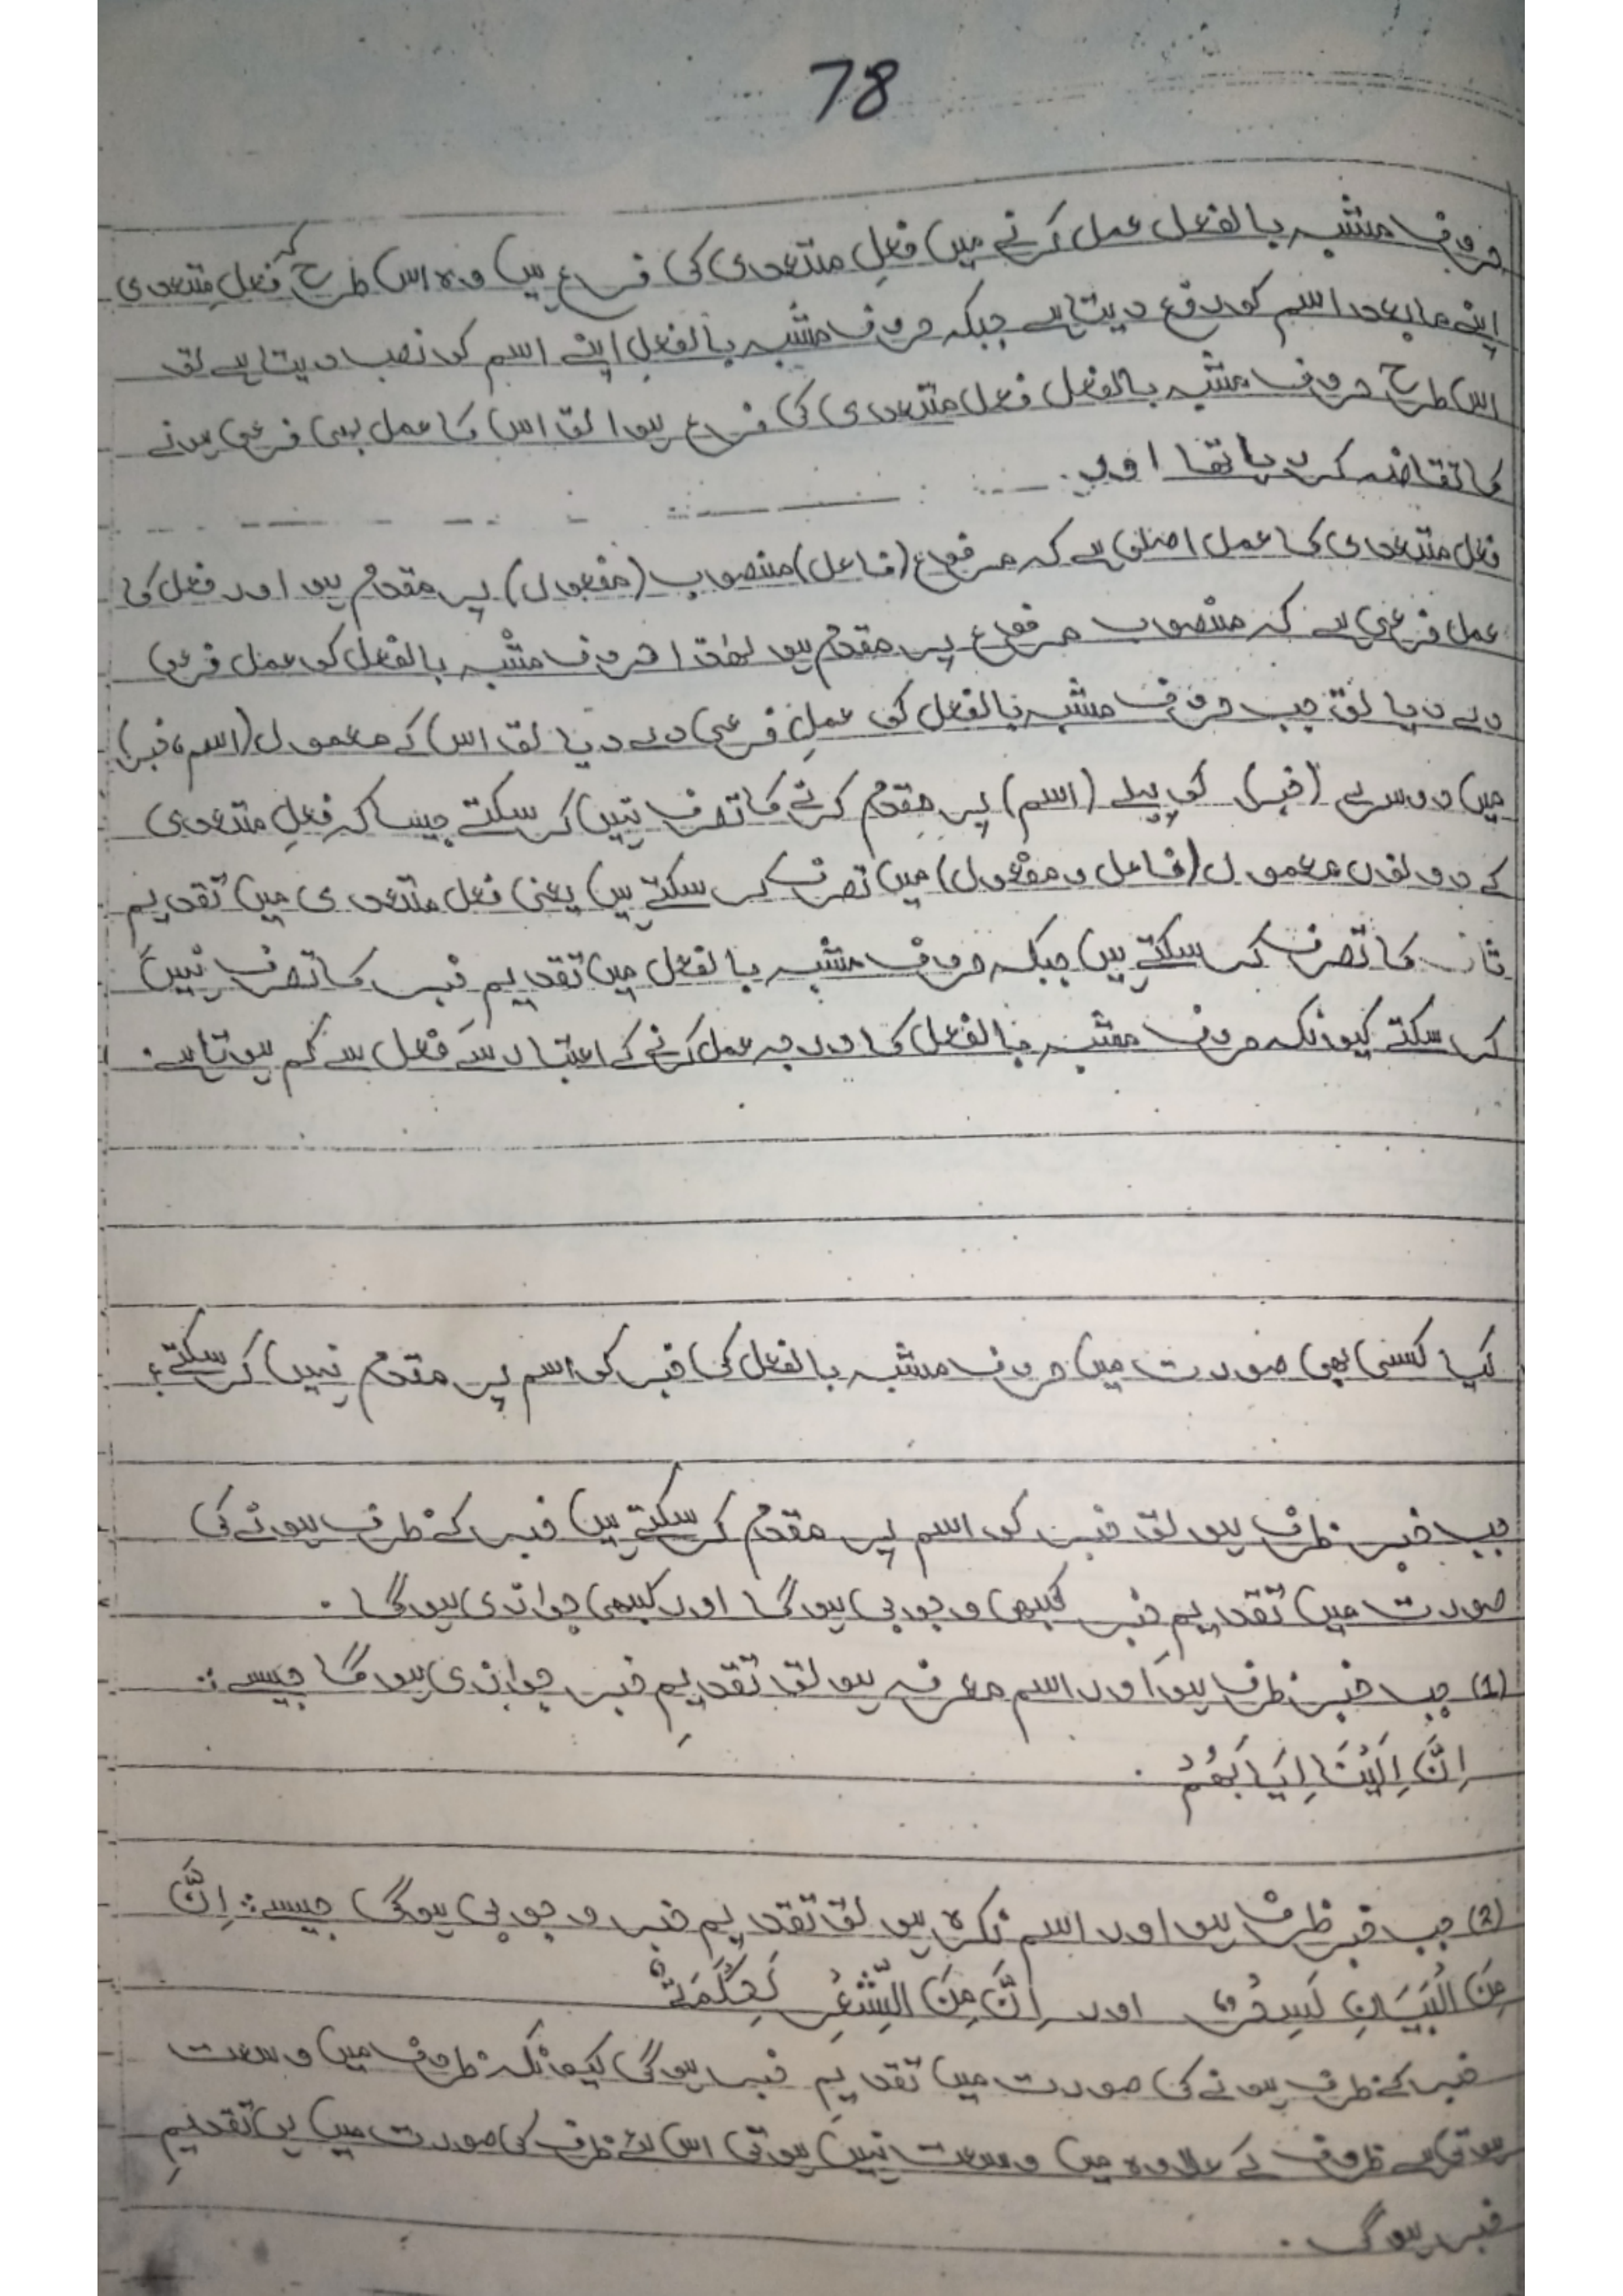 78
حروف مشبہ بالفعل عمل کرنے میں فعلِ متعدی کی فرع ہیں وہ اس طرح کہ فعلِ متعدی
اپنے مابعد اسم کو رفع دیتا ہے جبکہ حروف مشبہ بالفعل اپنے اسم کو نصب دیتا ہے تو
اس طرح حروف مشبہ بالفعل فعل متعدی کی فرع ہوا تو اس کا عمل بھی فرعی ہونے
کا تقاضہ کر رہا تھا اور
فعل متعدی کا عمل اصلی ہے کہ مرفوع (فاعل) منصوب (مفعول) پر مقدم ہو اور فعل کا
عمل فرعی ہے کہ منصوب مرفوع پر مقدم ہو لھٰذا حروف مشبہ بالفعل کو عمل فرعی
دے دیا تو جب حروف مشبہ بالفعل کو عملِ فرعی دے دیا تو اس کے معمول (اسم، خبر)
میں دوسرے (خبر) کو پہلے (اسم) پر مقدم کرنے کا تصرف نہیں کر سکتے جیسا کہ فعلِ متعدی
کے دونوں معمول (فاعل و مفعول) میں تصرف کر سکتے ہیں یعنی فعل متعدی میں تقدیم
ثان کا تصرف کر سکتے ہیں جبکہ حروف مشبہ بالفعل میں تقدیم خبر کا تصرف نہیں
کر سکتے کیونکہ حروف مشبہ بالفعل کا درجہ عمل کرنے کے اعتبار سے فعل سے کم ہوتا ہے۔
کیا کسی بھی صورت میں حروف مشبہ بالفعل کی خبر کو اسم پر مقدم نہیں کر سکتے؟
جب خبر ظرف ہو تو خبر کو اسم پر مقدم کر سکتے ہیں خبر کے ظرف ہونے کی
صورت میں تقدیمِ خبر کبھی وجوبی ہوگا اور کبھی جوازی ہوگا۔
(1) جب خبر ظرف ہو اور اسم معرفہ ہو تو تقدیمِ خبر جوازی ہوگا جیسے:
اِنَّ اِلَيْنَا اِيَابَهُمْ ۔
(2) جب خبر ظرف ہو اور اسم نکرہ ہو تو تقدیم خبر وجوبی ہوگی جیسے: اِنَّ
مِنَ الْبَيَانِ لَسِحْرٌ اور اِنَّ مِنَ الشِّعْرِ لَحِكْمَةٌ
خبر کے ظرف ہونے کی صورت میں تقدیمِ خبر ہوگی کیونکہ ظروف میں وسعت
ہوتی ہے ظروف کے علاوہ میں وسعت نہیں ہوتی اس لئے ظرف کی صورت میں ہی تقدیمِ
خبر ہوگی۔